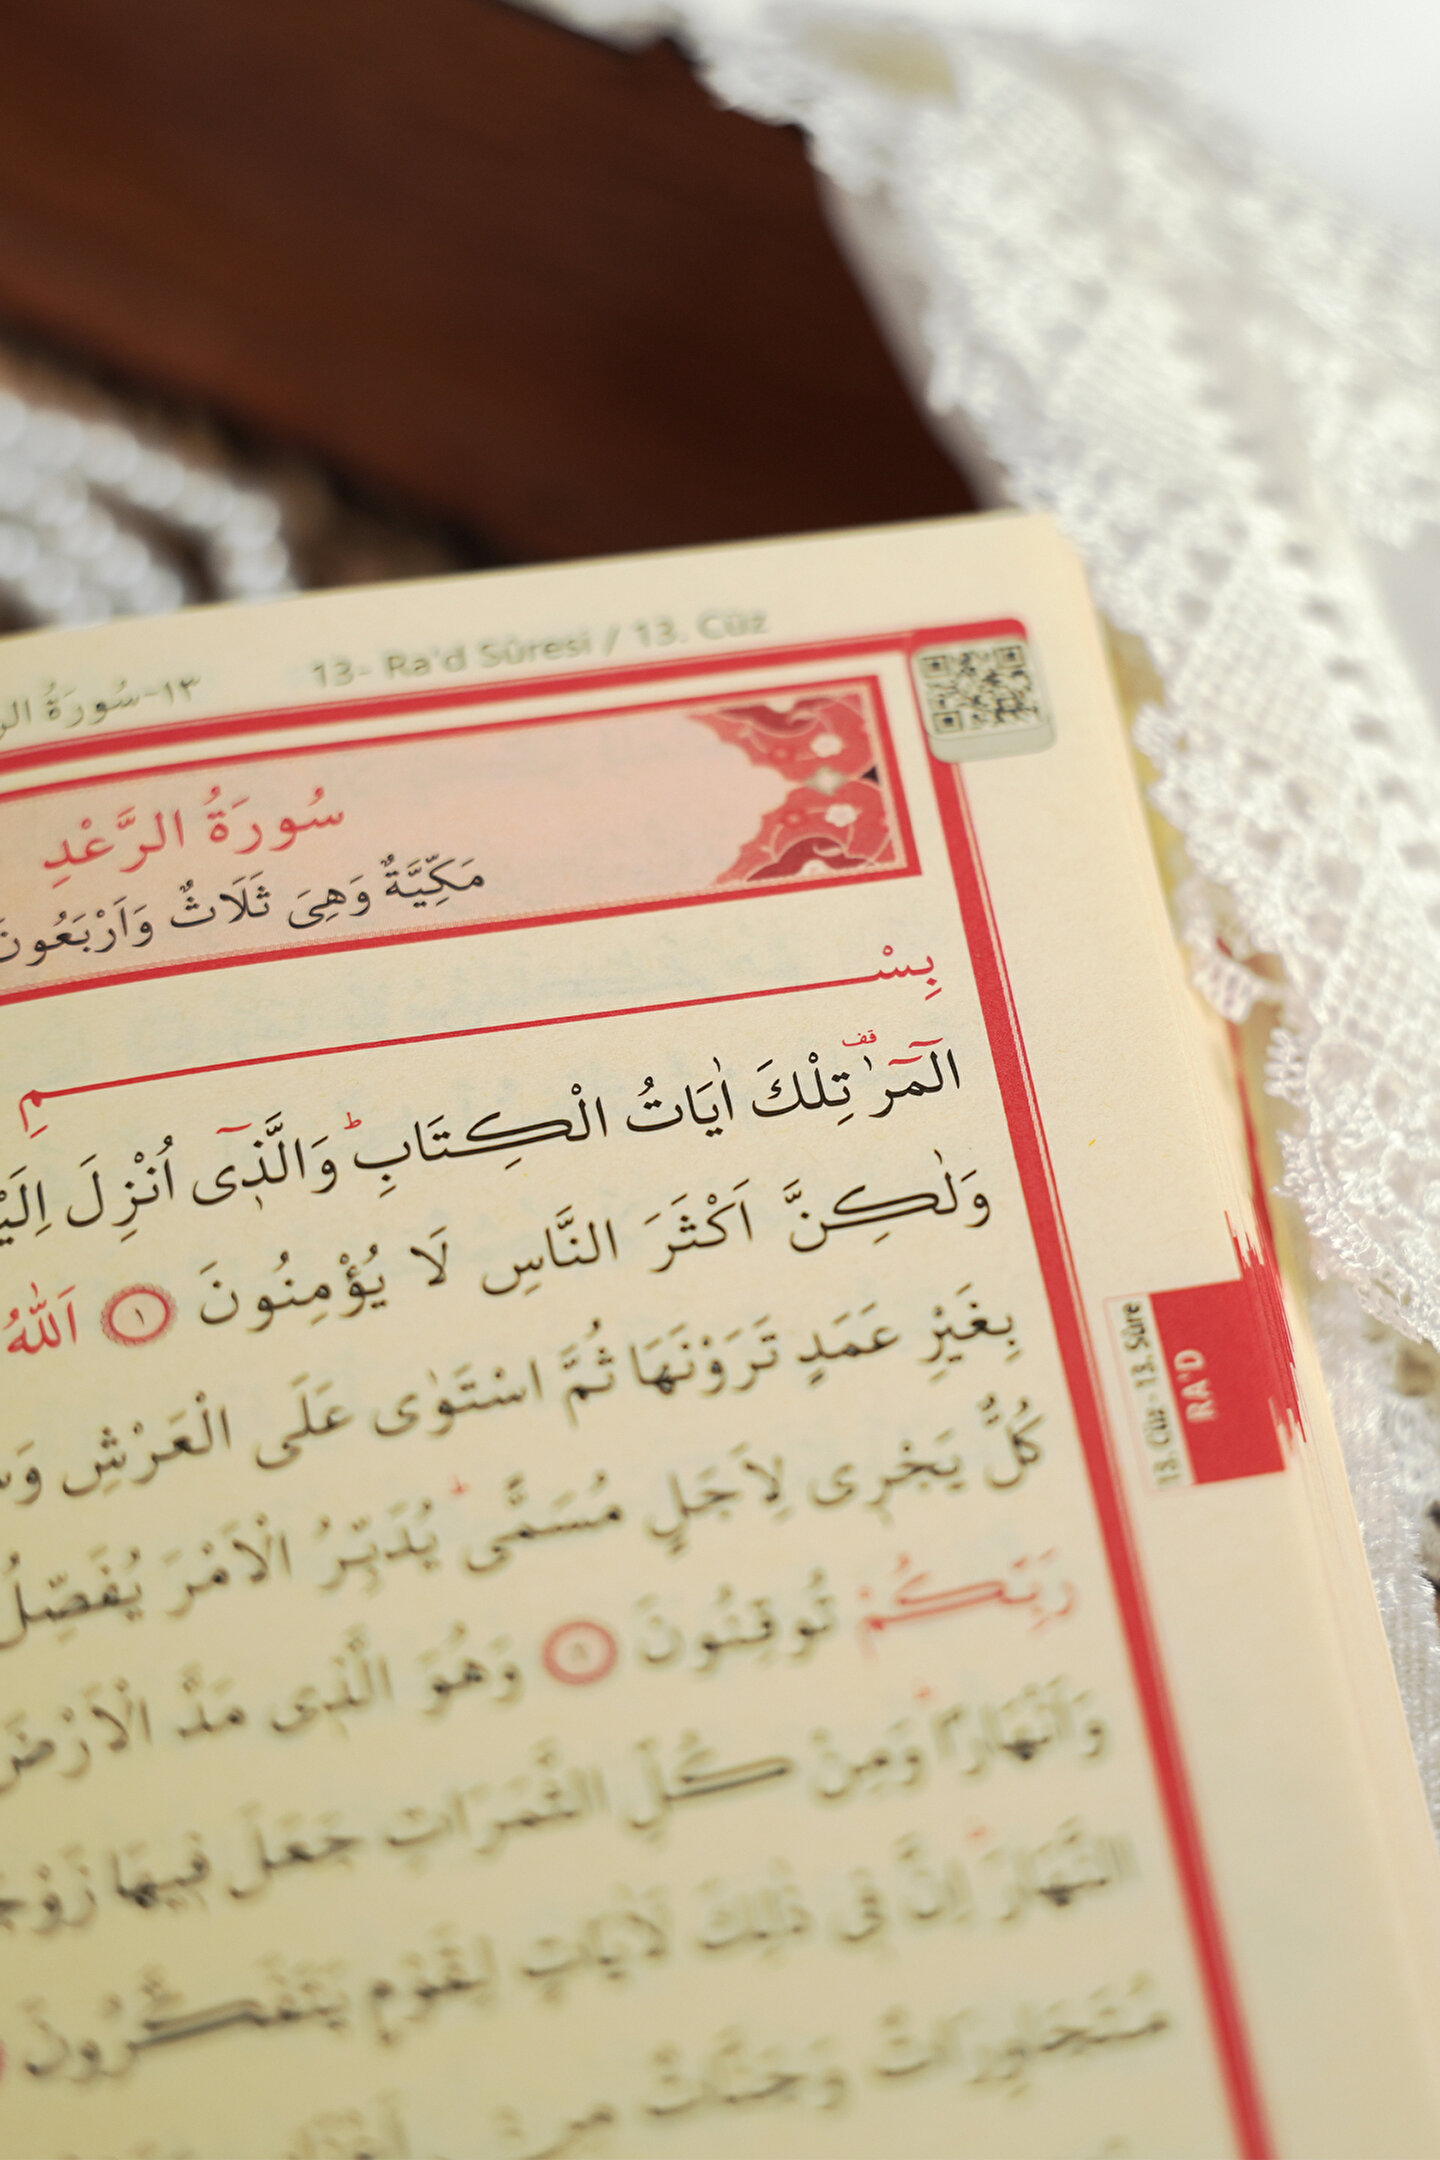 13- Ra'd Sûresi / 13. Cüz
١٣-سُورَةُ
سُورَةُ الرَّعْدِ
مَكِّيَّةٌ وَهِىَ ثَلَاثٌ وَاَرْبَعُونَ
بِسْــــــمِ
الٓمٓرٰ قف تِلْكَ اٰيَاتُ الْكِتَابِ ط وَالَّذٖٓى اُنْزِلَ
وَلٰكِنَّ اَكْثَرَ النَّاسِ لَا يُؤْمِنُونَ ١ اَللّٰهُ
بِغَيْرِ عَمَدٍ تَرَوْنَهَا ثُمَّ اسْتَوٰى عَلَى الْعَرْشِ
كُلٌّ يَجْرٖى لِاَجَلٍ مُسَمًّى ط يُدَبِّرُ الْاَمْرَ يُفَصِّلُ
رَبِّكُمْ تُوقِنُونَ وَهُوَ الَّذٖى مَدَّ الْاَرْضَ
وَاَنْهَارًا ط وَمِنْ كُلِّ الثَّمَرَاتِ جَعَلَ فٖيهَا
النَّهَارَ ط اِنَّ فٖى ذٰلِكَ لَاٰيَاتٍ لِقَوْمٍ يَتَفَكَّرُونَ
مُتَجَاوِرَاتٌ وَجَنَّاتٌ مِنْ
13. Cüz - 13. Sûre
RA'D